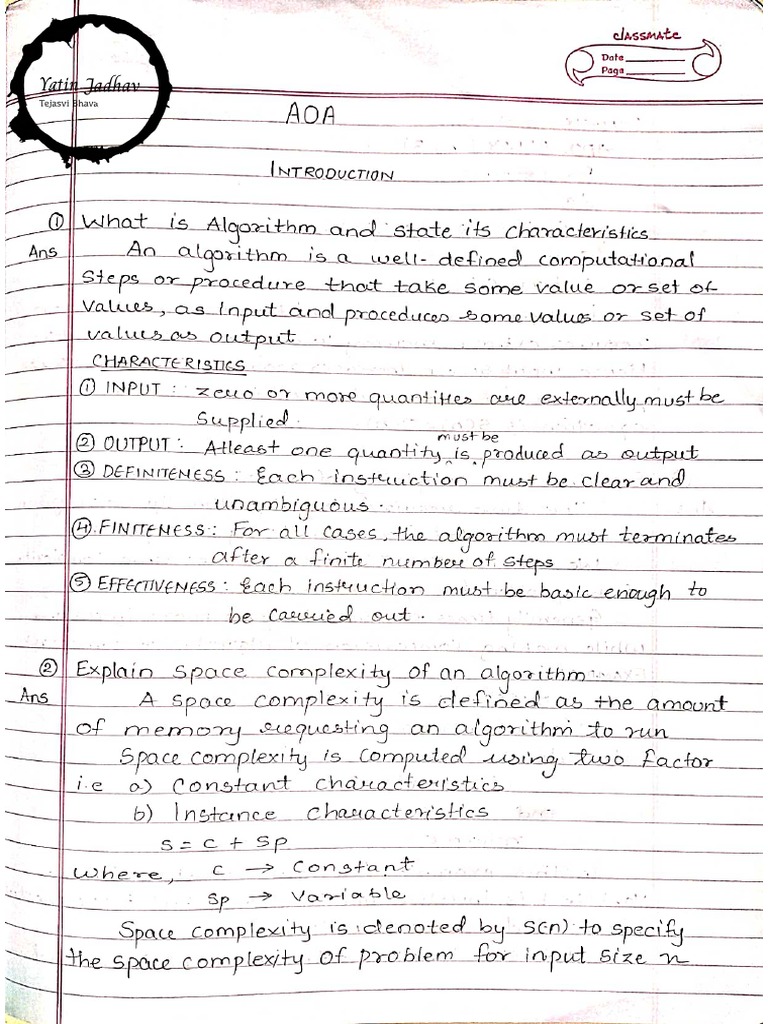 classmate
Date
Page
Yatin Jadhav
Tejasvi Bhava
AOA
INTRODUCTION
① What is Algorithm and state its characteristics
Ans An algorithm is a well-defined computational
steps or procedure that take some value or set of
values, as input and proceduces some values or set of
values as output
CHARACTERISTICS
① INPUT : zero or more quantities are externally must be
supplied.
② OUTPUT : Atleast one quantity is must be produced as output
③ DEFINITENESS : Each instruction must be clear and
unambiguous.
④ FINITENESS : For all cases, the algorithm must terminates
after a finite number of steps
⑤ EFFECTIVENESS : Each instruction must be basic enough to
be carried out.
② Explain space complexity of an algorithm
Ans A space complexity is defined as the amount
of memory requesting an algorithm to run
Space complexity is computed using two factor
i.e a) Constant characteristics
b) Instance characteristics
S = C + Sp
where, C → Constant
Sp → Variable
Space complexity is denoted by S(n) to specify
the space complexity of problem for input size n